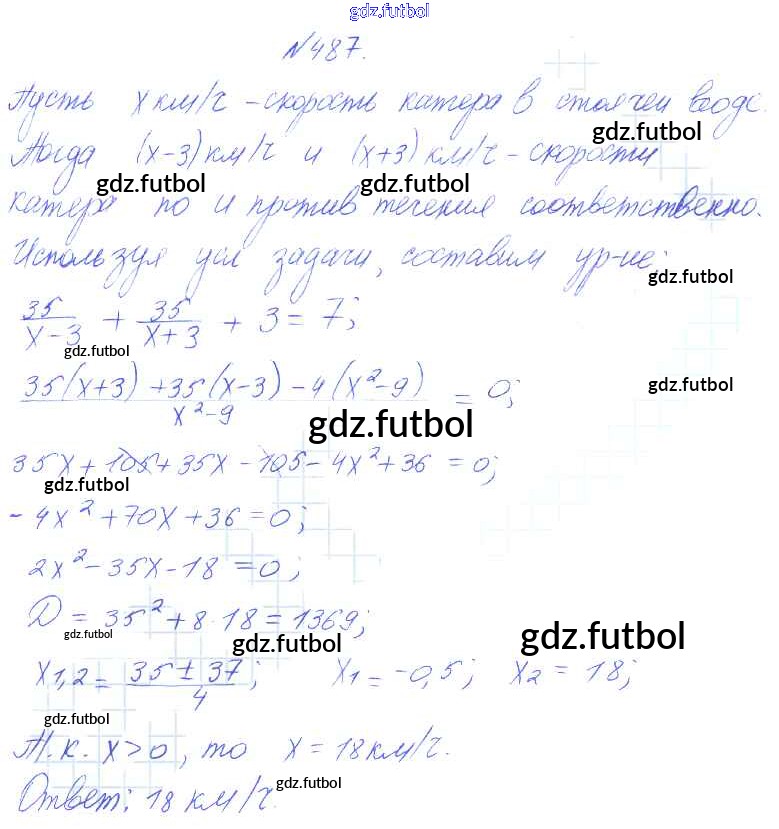 gdz.futbol
№487.
Пусть x км/ч - скорость катера в стоячей воде.
gdz.futbol
Тогда (x-3) км/ч и (x+3) км/ч - скорости
gdz.futbol gdz.futbol
катера по и против течения соответственно.
Используя усл задачи, составим ур-ие:
gdz.futbol
35/(x-3) + 35/(x+3) + 3 = 7;
gdz.futbol
(35(x+3) + 35(x-3) - 4(x²-9))/(x²-9) = 0;
gdz.futbol
gdz.futbol
35x + 105 + 35x - 105 - 4x² + 36 = 0;
gdz.futbol
-4x² + 70x + 36 = 0;
2x² - 35x - 18 = 0;
D = 35² + 8·18 = 1369;
gdz.futbol gdz.futbol gdz.futbol
x1,2 = (35 ± 37)/4; x1 = -0,5; x2 = 18;
gdz.futbol
Т.к. x > 0, то x = 18 км/ч.
gdz.futbol
Ответ: 18 км/ч.